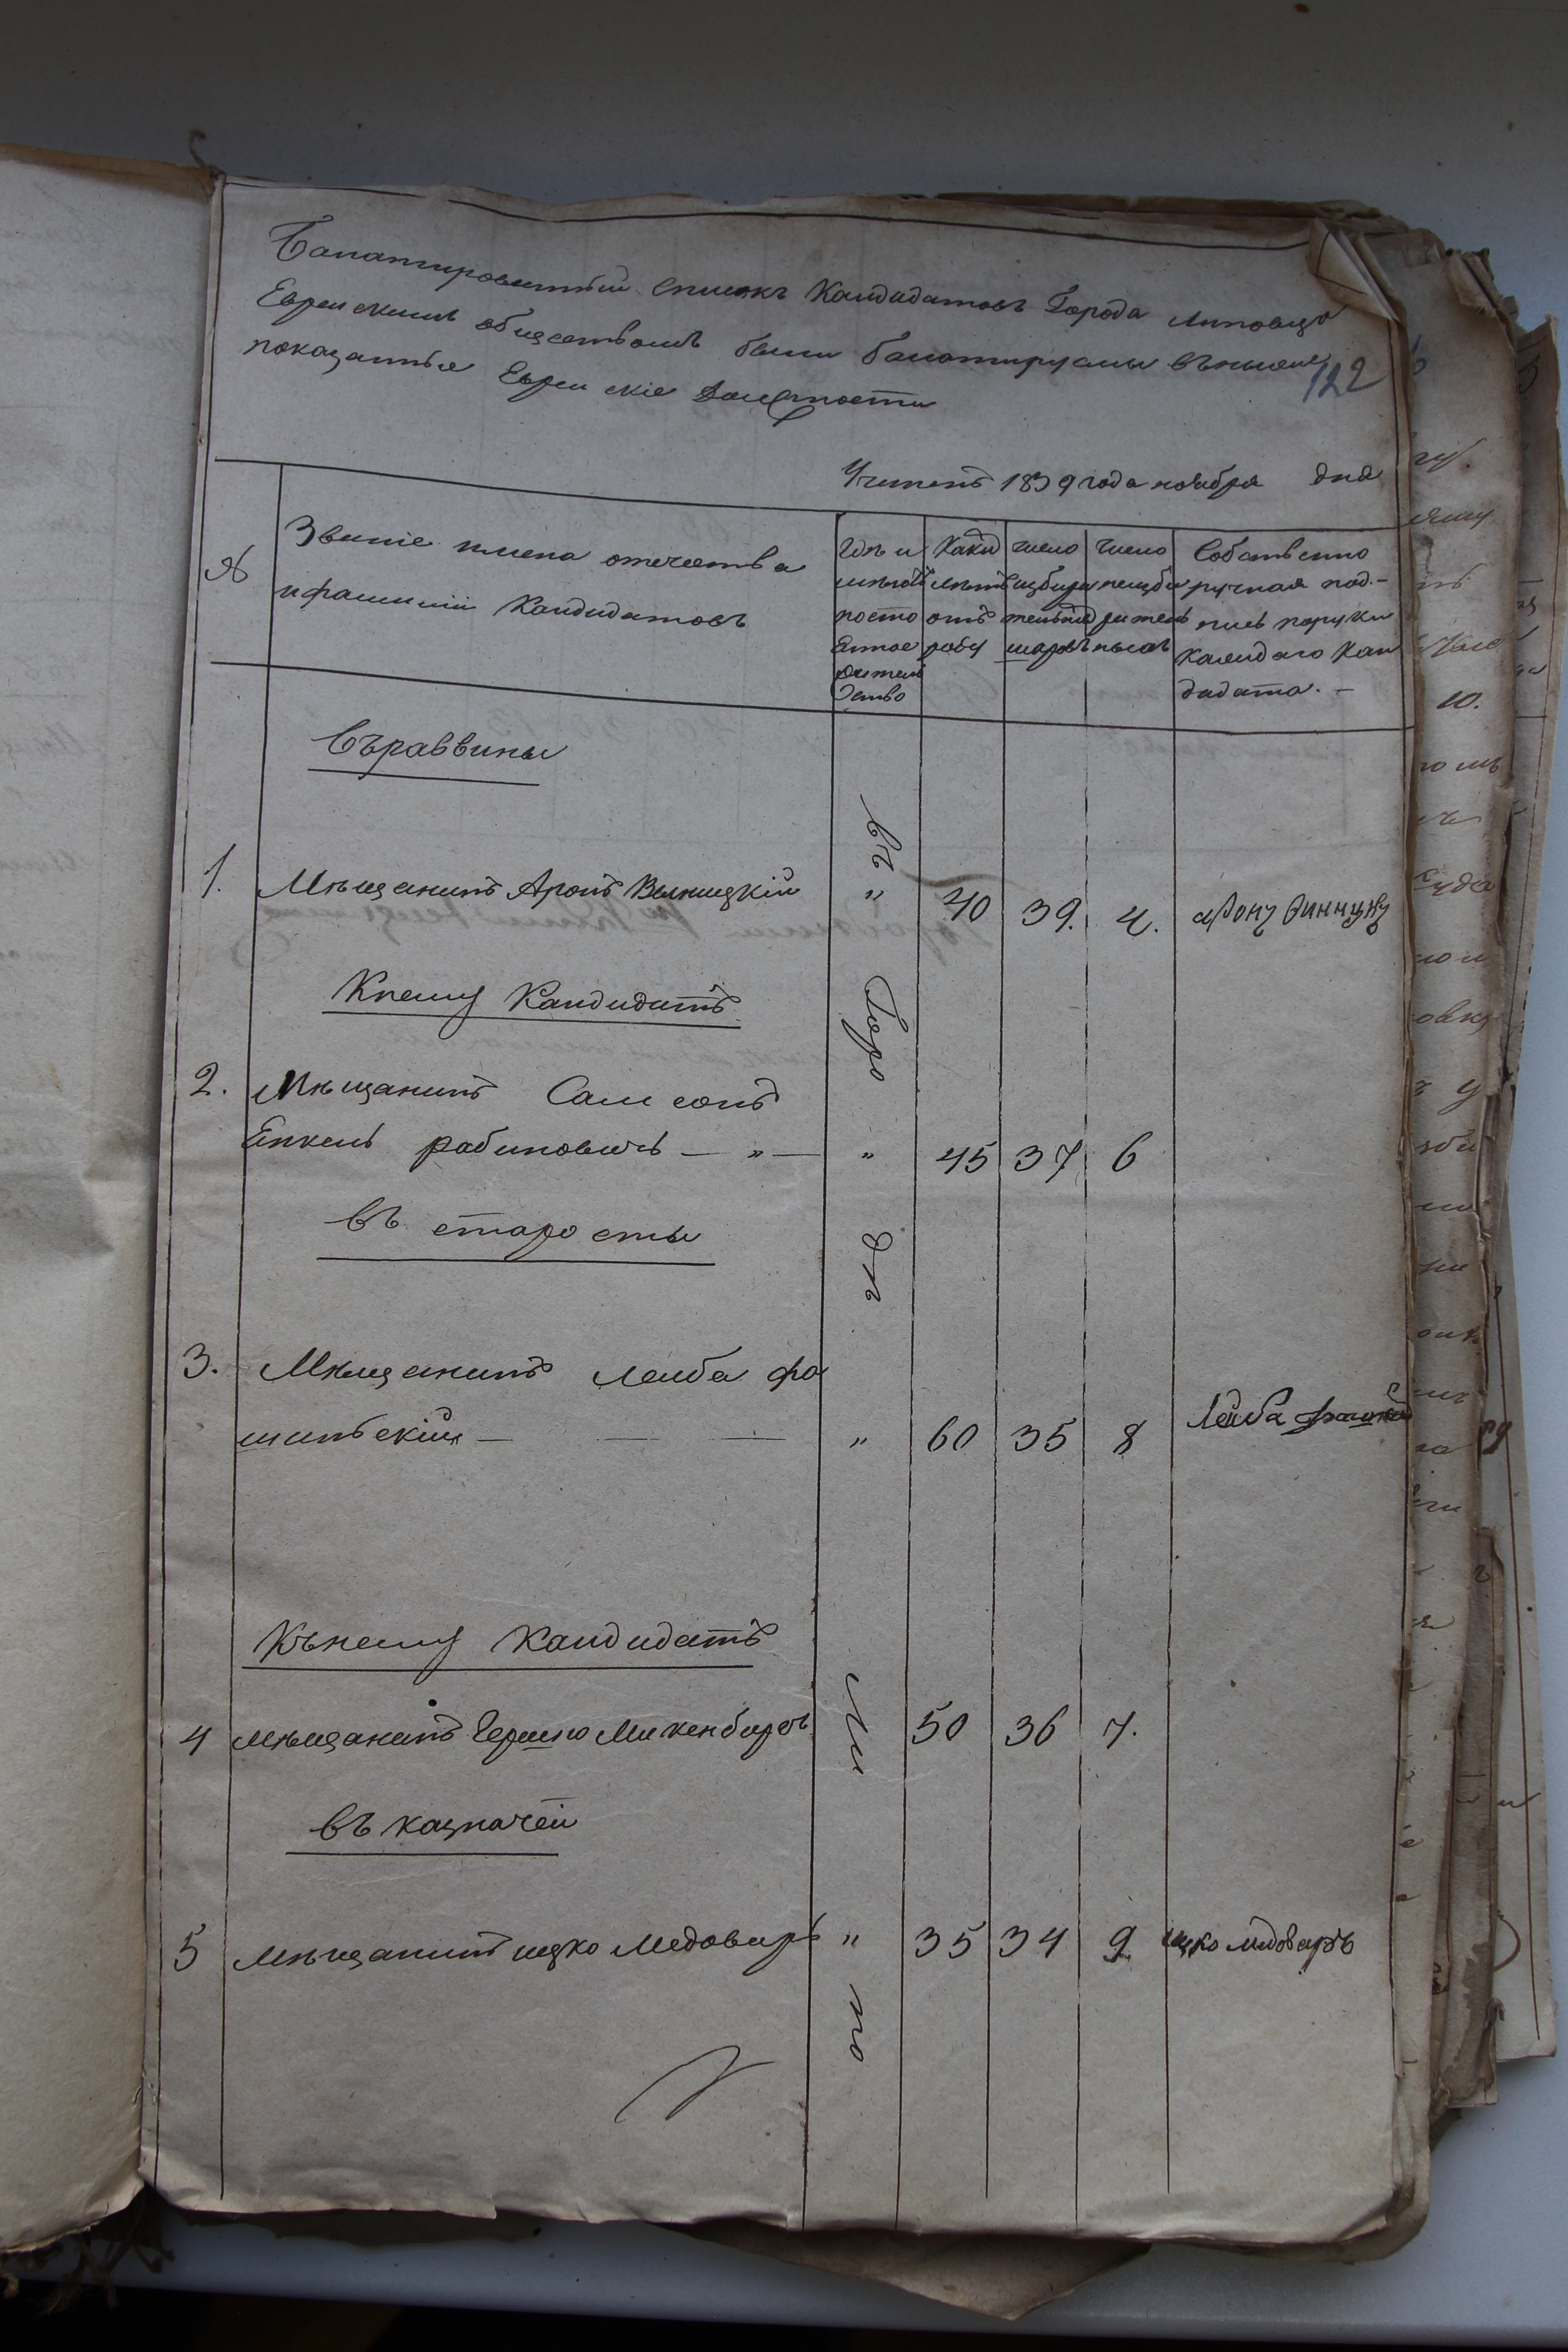 Балатировытный списокъ Кандидатовъ Города Липовца
Евреискимъ обществомъ были балотируемы въниже
показанныя Евреискіе Должности
122
Учиненъ 1839 года ноября дня
№
Званіе имена отечества
и фамиліи Кандидатовъ
Гдѣ и
имѣютъ
посто
янное
жител
ство
Какихъ
лѣтъ
отъ
роду
число
избира
тельных
шаровъ
число
неизби
рател
ныхъ
Собственно
ручная под-
пись поруки
каждаго Кан
дидата. —
Въраввины
1. Мѣщанинъ Аронъ Винницкій " 40 39. 4. Арону Винницку
Кнему Кандидатъ
2. Мѣщанинъ Самсонъ
Енкель рабиновичъ — " — " 45 37 6
въ старосты
3. Мѣщанинъ Леиба фа
шинскій — — — " 60 35 8 Лейба
Кънему Кандидатъ
4 мѣщанинъ Гершко Микенбергъ 50 36 7.
въ казначеи
5 мѣщанинъ ицко Медоваръ " 35 34 9 ицко медоваръ
въ Горо дѣ Ли по